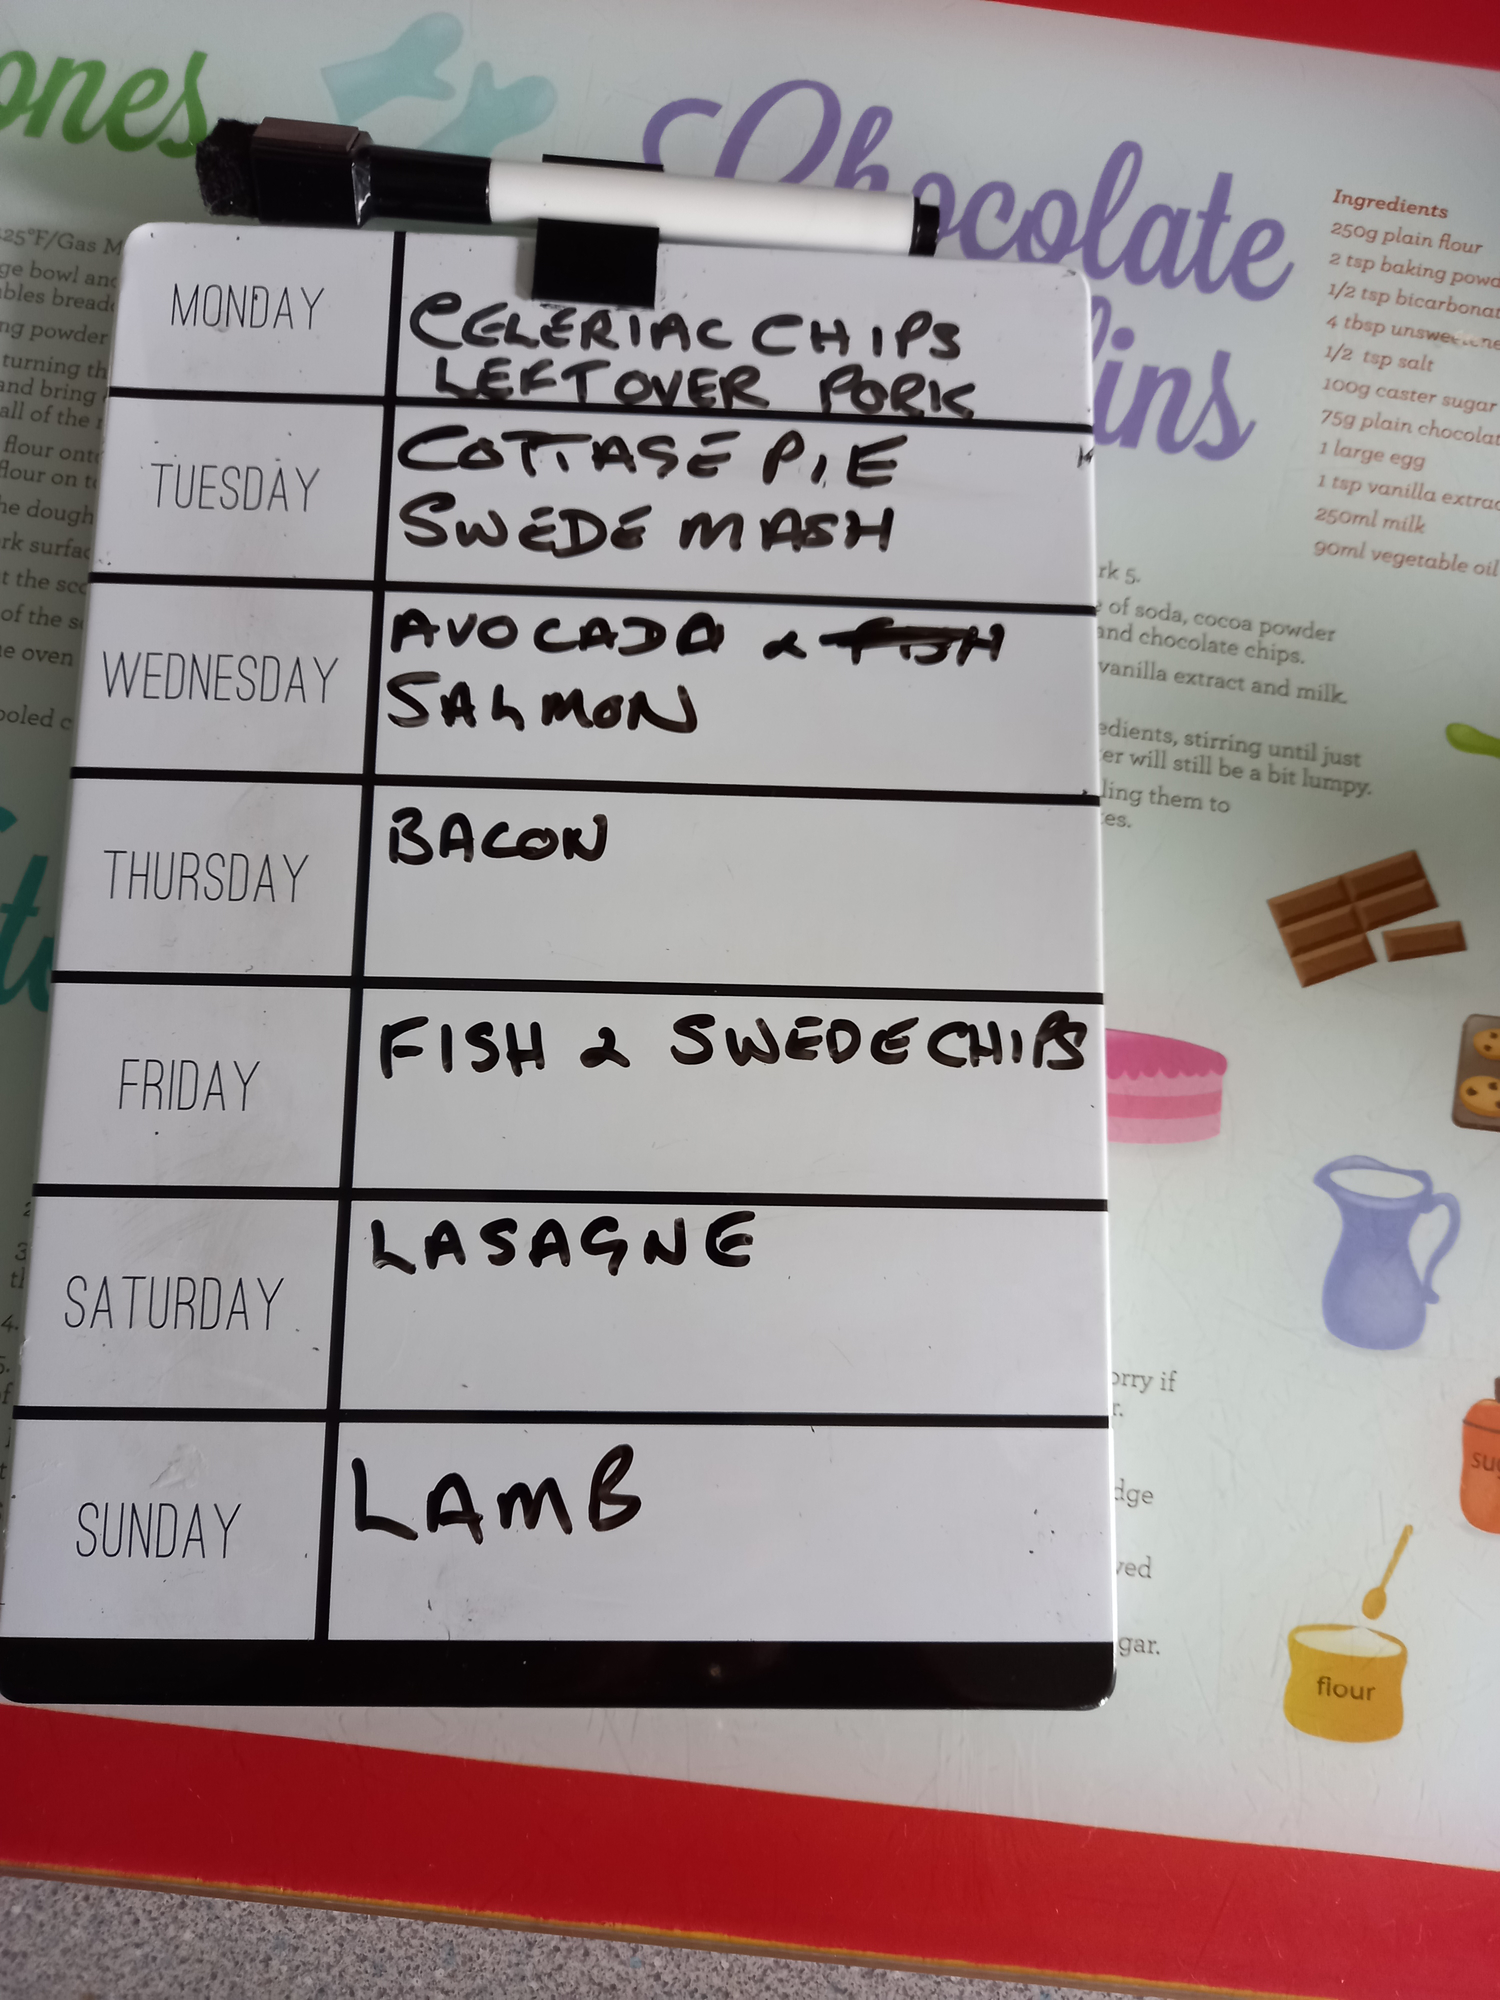 ones
Chocolate
ins
Ingredients
250g plain flour
2 tsp baking
1/2 tsp
4 tbsp
1/2 tsp salt
100g caster sugar
75g plain
1 large egg
1 tsp vanilla
250ml milk
90ml vegetable oil
MONDAY
CELERIAC CHIPS
LEFTOVER PORK
TUESDAY
COTTAGE PIE
SWEDE MASH
WEDNESDAY
AVOCADA & FISH
SALMON
THURSDAY
BACON
FRIDAY
FISH & SWEDE CHIPS
SATURDAY
LASAGNE
SUNDAY
LAMB
25°F/Gas M
ge bowl and
ng powder
turning th
and bring
all of the
flour onto
flour on t
he dough
rk surfac
t the sco
of the s
e oven
ooled c
rk 5.
of soda, cocoa powder
and chocolate chips.
vanilla extract and milk.
edients, stirring until just
er will still be a bit lumpy.
ling them to
es.
orry if
r.
dge
ved
gar.
3
4.
5.
flour
su